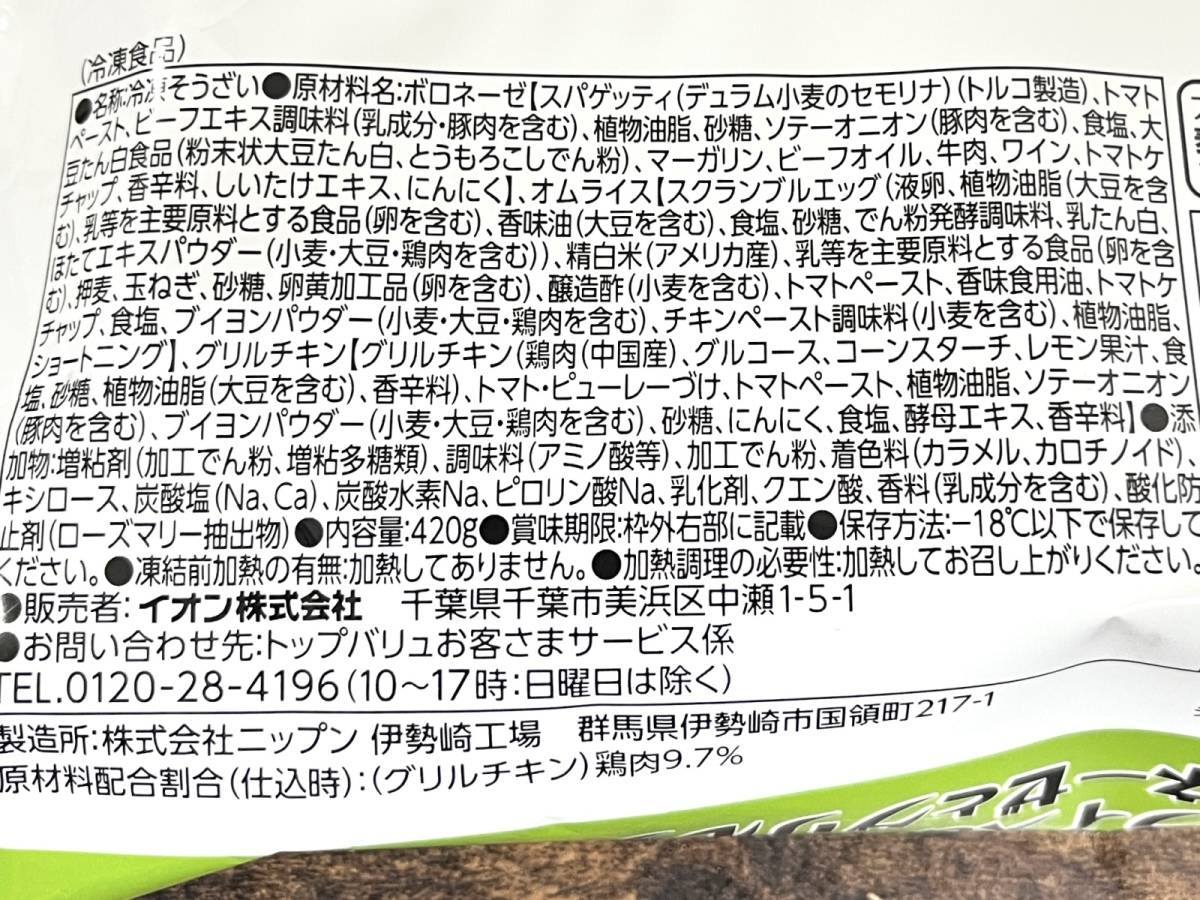 (冷凍食品)
●名称:冷凍そうざい●原材料名:ボロネーゼ【スパゲッティ(デュラム小麦のセモリナ)(トルコ製造)、トマト
ペースト、ビーフエキス調味料(乳成分・豚肉を含む)、植物油脂、砂糖、ソテーオニオン(豚肉を含む)、食塩、大
豆たん白食品(粉末状大豆たん白、とうもろこしでん粉)、マーガリン、ビーフオイル、牛肉、ワイン、トマトケ
チャップ、香辛料、しいたけエキス、にんにく】、オムライス【スクランブルエッグ(液卵、植物油脂(大豆を含
む)、乳等を主要原料とする食品(卵を含む)、香味油(大豆を含む)、食塩、砂糖、でん粉発酵調味料、乳たん白、
ほたてエキスパウダー(小麦・大豆・鶏肉を含む))、精白米(アメリカ産)、乳等を主要原料とする食品(卵を含
む)、押麦、玉ねぎ、砂糖、卵黄加工品(卵を含む)、醸造酢(小麦を含む)、トマトペースト、香味食用油、トマトケ
チャップ、食塩、ブイヨンパウダー(小麦・大豆・鶏肉を含む)、チキンペースト調味料(小麦を含む)、植物油脂、
ショートニング】、グリルチキン【グリルチキン(鶏肉(中国産)、グルコース、コーンスターチ、レモン果汁、食
塩、砂糖、植物油脂(大豆を含む)、香辛料)、トマト・ピューレーづけ、トマトペースト、植物油脂、ソテーオニオン
(豚肉を含む)、ブイヨンパウダー(小麦・大豆・鶏肉を含む)、砂糖、にんにく、食塩、酵母エキス、香辛料】●添
加物:増粘剤(加工でん粉、増粘多糖類)、調味料(アミノ酸等)、加工でん粉、着色料(カラメル、カロチノイド)、
キシロース、炭酸塩(Na、Ca)、炭酸水素Na、ピロリン酸Na、乳化剤、クエン酸、香料(乳成分を含む)、酸化防
止剤(ローズマリー抽出物)●内容量:420g●賞味期限:枠外右部に記載●保存方法:−18℃以下で保存して
ください。●凍結前加熱の有無:加熱してありません。●加熱調理の必要性:加熱してお召し上がりください。
●販売者:イオン株式会社 千葉県千葉市美浜区中瀬1-5-1
●お問い合わせ先:トップバリュお客さまサービス係
TEL.0120-28-4196(10〜17時:日曜日は除く)
製造所:株式会社ニップン 伊勢崎工場 群馬県伊勢崎市国領町217-1
原材料配合割合(仕込時):(グリルチキン)鶏肉9.7%